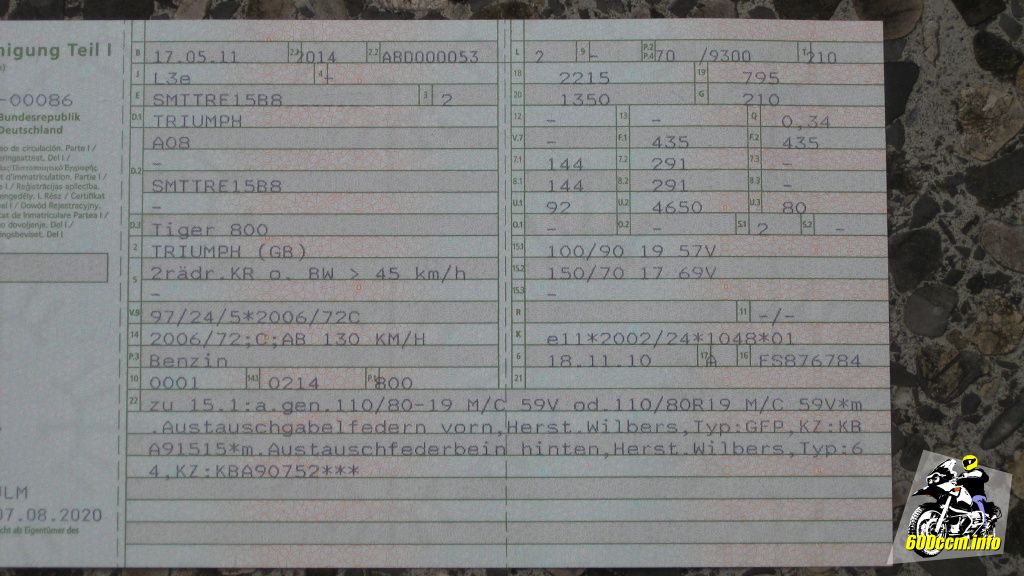 nigung Teil I
-00086
Bundesrepublik
Deutschland
eo de circulación. Parte I /
eringsattest. Del I /
at d'immatriculation. Partie I /
e I / Reģistrācijas apliecība.
engedély. I. Rész / Certifikat
el I / Dowód Rejestracyjny.
at de Înmatriculare Partea I /
o dovoljenje. Del I /
ingsbeviset. Del I
ULM
07.08.2020
cht als Eigentümer des
B 17.05.11 2.1 2014 2.2 ABD000053
J L3e 4 -
E SMTTRE15B8 3 2
D.1 TRIUMPH
A08
-
D.2 SMTTRE15B8
-
D.3 Tiger 800
2 TRIUMPH (GB)
5 2rädr.KR o. BW > 45 km/h
-
V.9 97/24/5*2006/72C
14 2006/72;C;AB 130 KM/H
P.3 Benzin
10 0001 14.1 0214 P.1 800
L 2 9 - P.2 P.4 70 /9300 T 210
18 2215 19 795
20 1350 G 210
12 - 13 - Q 0,34
V.7 - F.1 435 F.2 435
7.1 144 7.2 291 7.3 -
8.1 144 8.2 291 8.3 -
U.1 92 U.2 4650 U.3 80
O.1 - O.2 - S.1 2 S.2 -
15.1 100/90 19 57V
15.2 150/70 17 69V
15.3 -
R 11 -/-
K e11*2002/24*1048*01
6 18.11.10 17 A 16 FS876784
21
22 zu 15.1:a.gen.110/80-19 M/C 59V od.110/80R19 M/C 59V*m
.Austauschgabelfedern vorn,Herst.Wilbers,Typ:GFP,KZ:KB
A91515*m.Austauschfederbein hinten,Herst.Wilbers,Typ:6
4,KZ:KBA90752***
600ccm.info